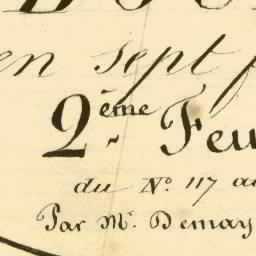 en sept f
2.ème Feu
du N.º 117 au
Par M.r Demay